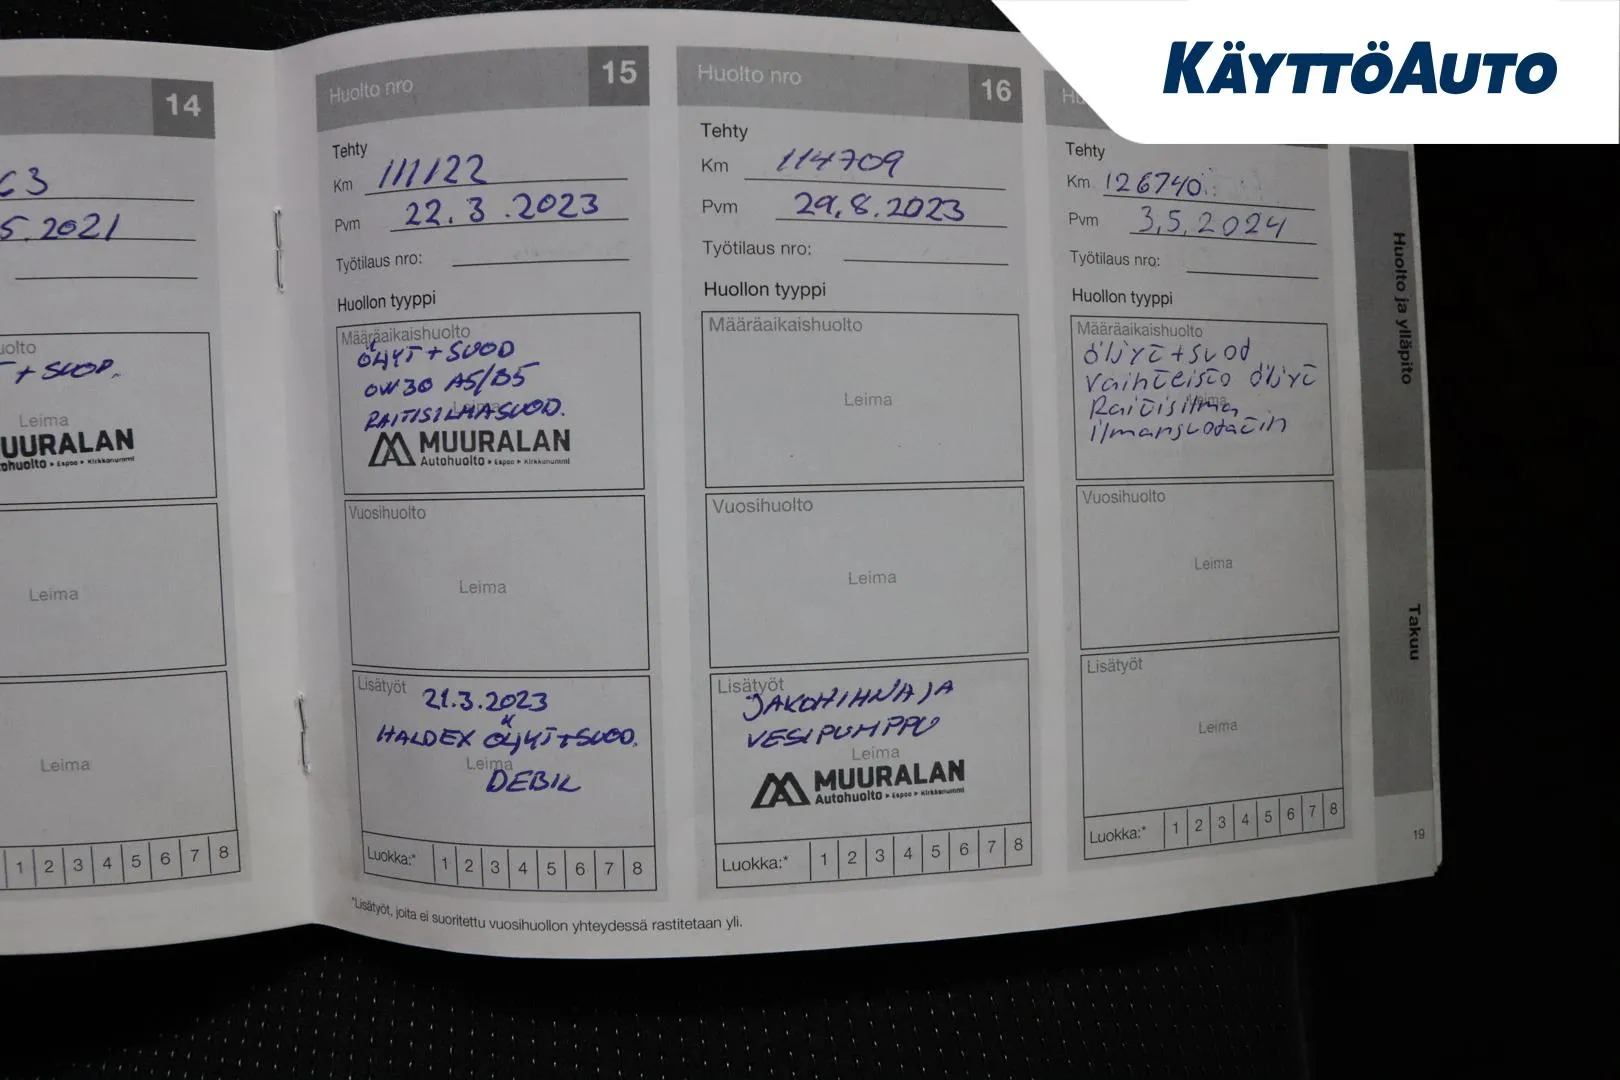 KÄYTTÖAUTO
14
63
5.2021
+ SUOD.
Leima
UURALAN
Espoo ▸ Kirkkonummi
Leima
Leima
1 2 3 4 5 6 7 8
Huolto nro 15
Tehty
Km 111122
Pvm 22.3.2023
Työtilaus nro:
Huollon tyyppi
Määräaikaishuolto
ÖLJYT + SUOD
0W30 A5/B5
RAITISILMASUOD.
Leima
MUURALAN
Autohuolto ▸ Espoo ▸ Kirkkonummi
Vuosihuolto
Leima
Lisätyöt
21.3.2023
HALDEX ÖLJYT+SUOD.
Leima
DEBIL
Luokka:* 1 2 3 4 5 6 7 8
Huolto nro 16
Tehty
Km 114709
Pvm 29.8.2023
Työtilaus nro:
Huollon tyyppi
Määräaikaishuolto
Leima
Vuosihuolto
Leima
Lisätyöt
JAKOHIHNA JA
VESIPUMPPU
Leima
MUURALAN
Autohuolto ▸ Espoo ▸ Kirkkonummi
Luokka:* 1 2 3 4 5 6 7 8
Tehty
Km 126740
Pvm 3.5.2024
Työtilaus nro:
Huollon tyyppi
Määräaikaishuolto
öljyt + suod
vaihteisto öljyt
Leima
Raitisilma
ilmansuodatin
Vuosihuolto
Leima
Lisätyöt
Leima
Luokka:* 1 2 3 4 5 6 7 8
*Lisätyöt, joita ei suoritettu vuosihuollon yhteydessä rastitetaan yli.
Huolto ja ylläpito
Takuu
19